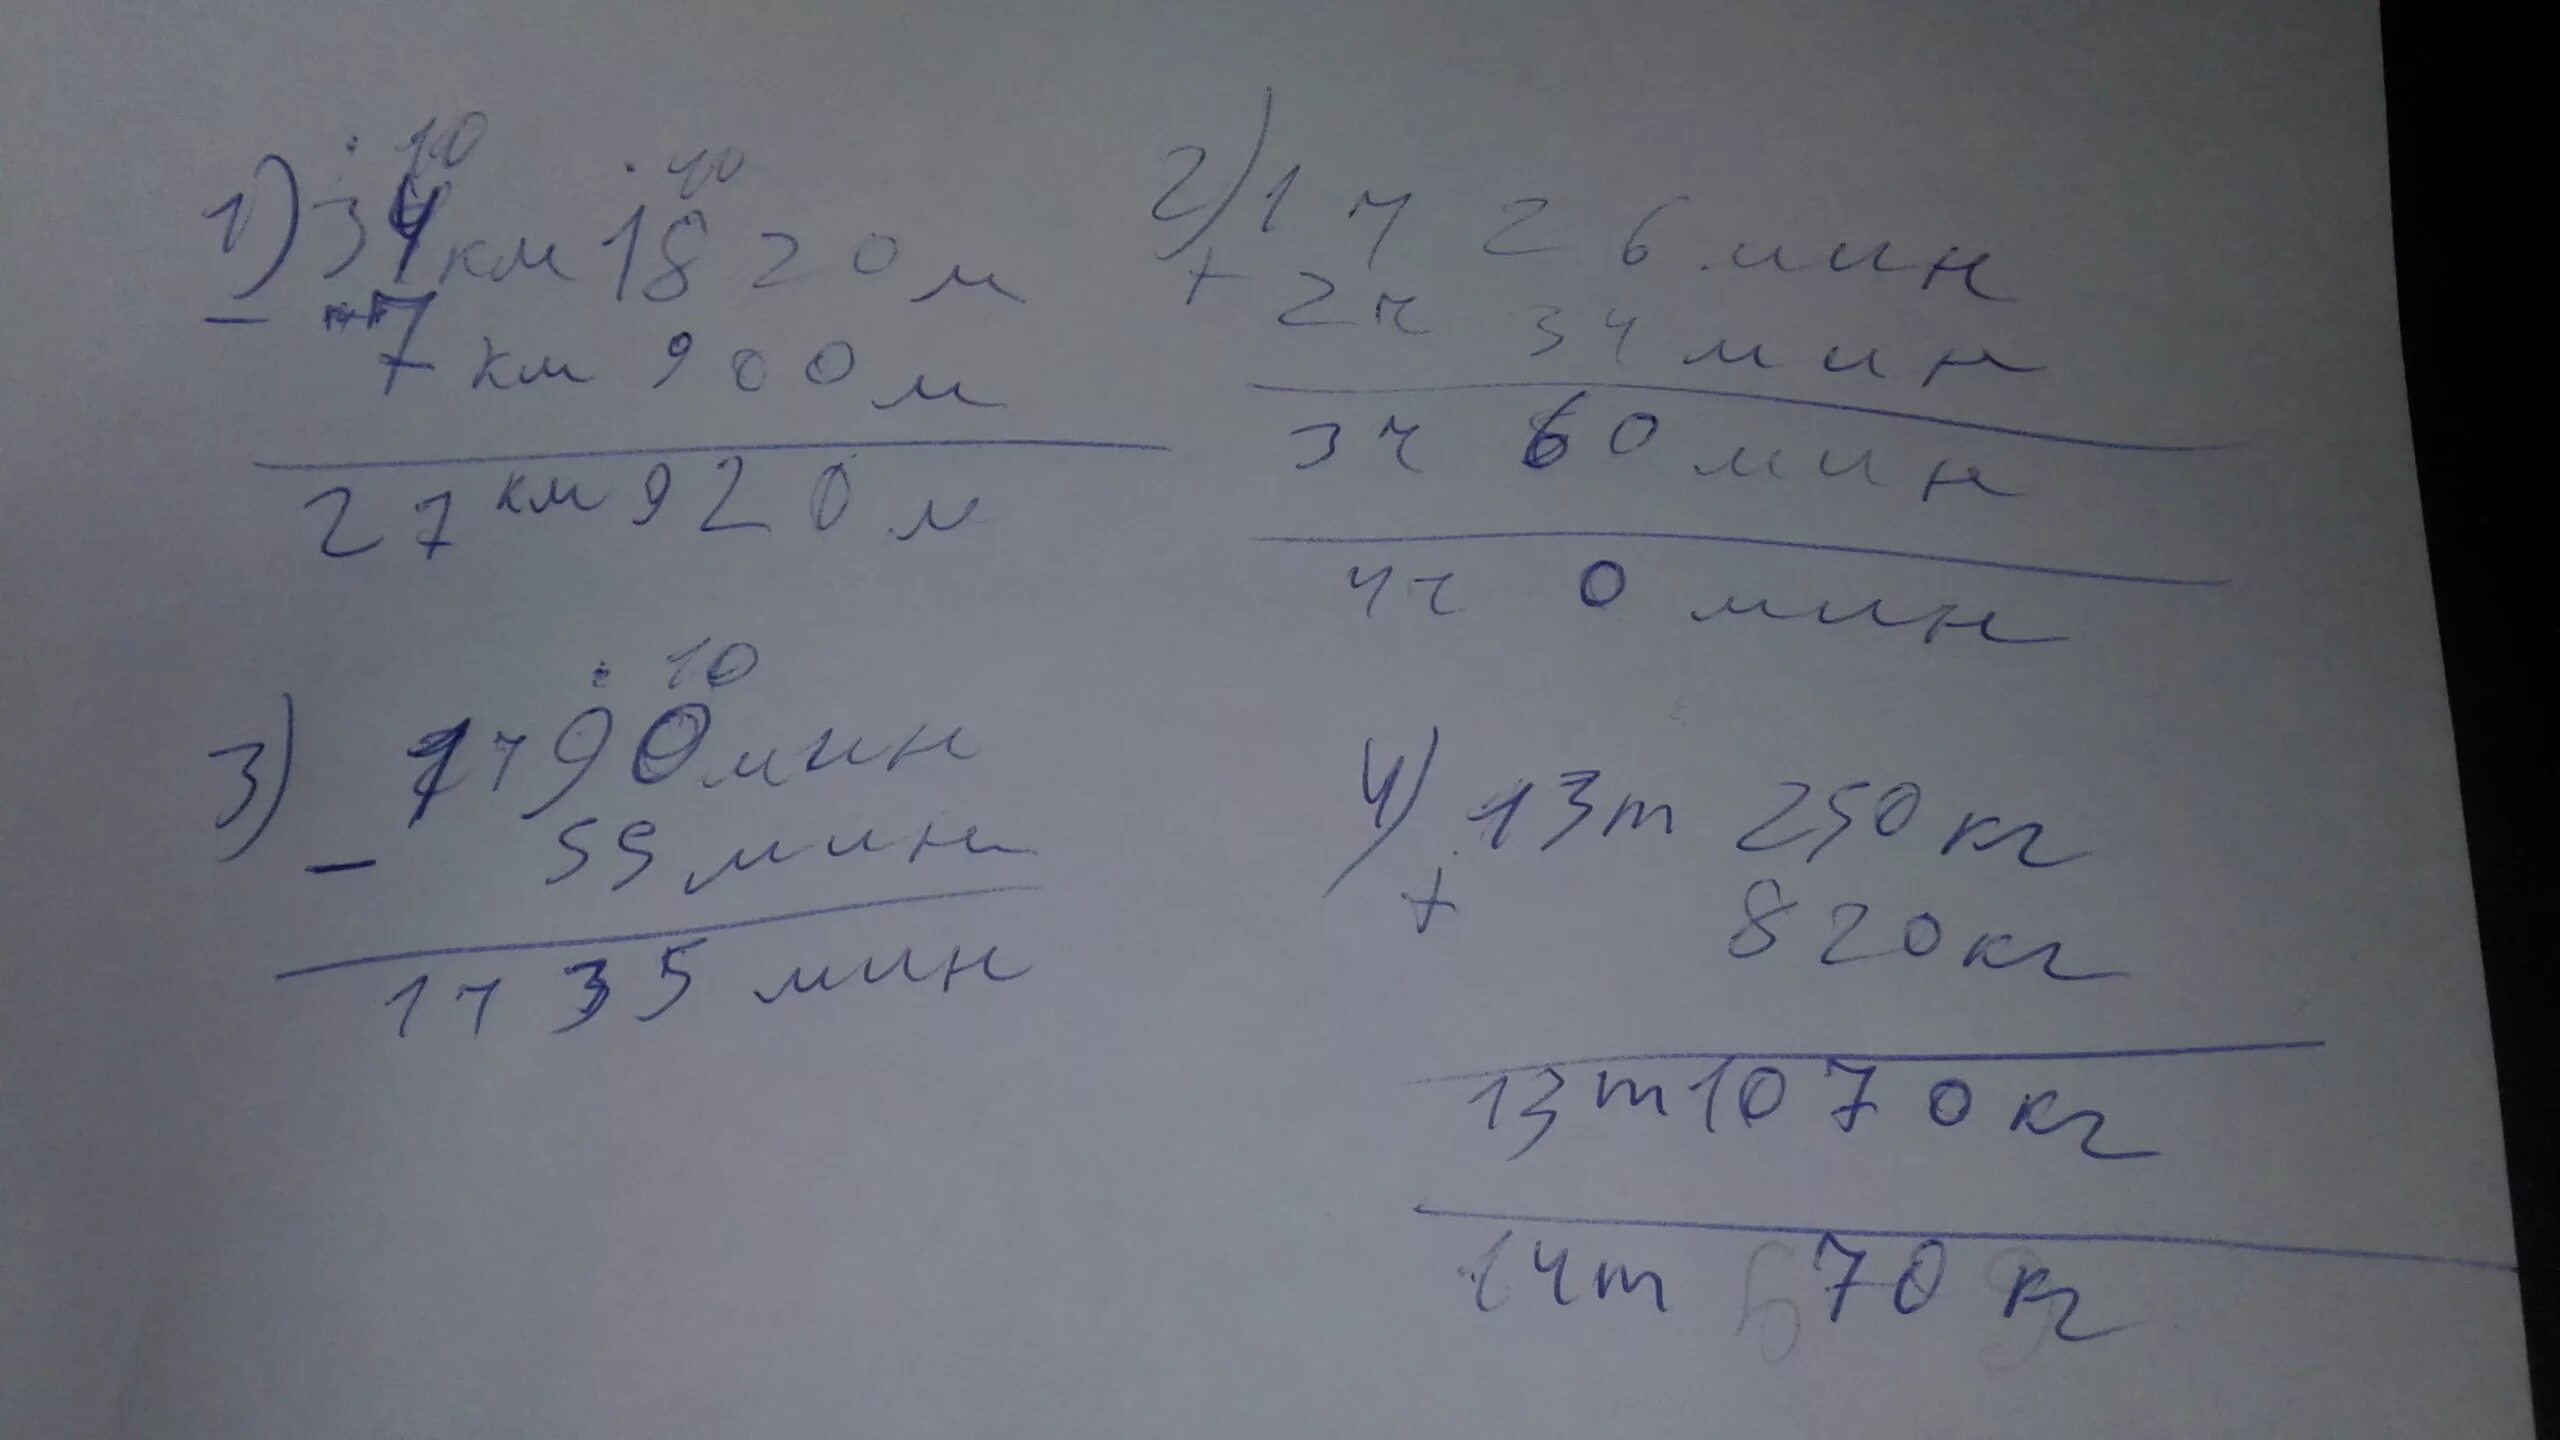 10 10
1) 34 км 1820 м
- 7 км 900 м
27 км 920 м
2) 1 ч 26 мин
+ 2 ч 34 мин
3 ч 60 мин
4 ч 0 мин
10
3) 1 ч 90 мин
- 55 мин
1 ч 35 мин
4) 13 т 250 кг
+ 820 кг
13 т 1070 кг
14 т 70 кг